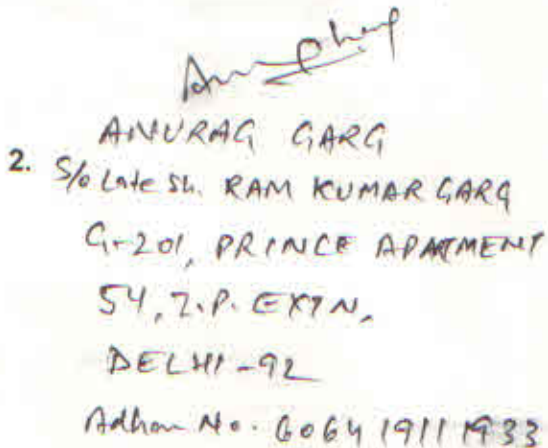 ANURAG GARG
2. S/o Late Sh. RAM KUMAR GARG
G-201, PRINCE APARTMENT
54, I.P. EXTN,
DELHI-92
Adhar No. 6064 1911 1933